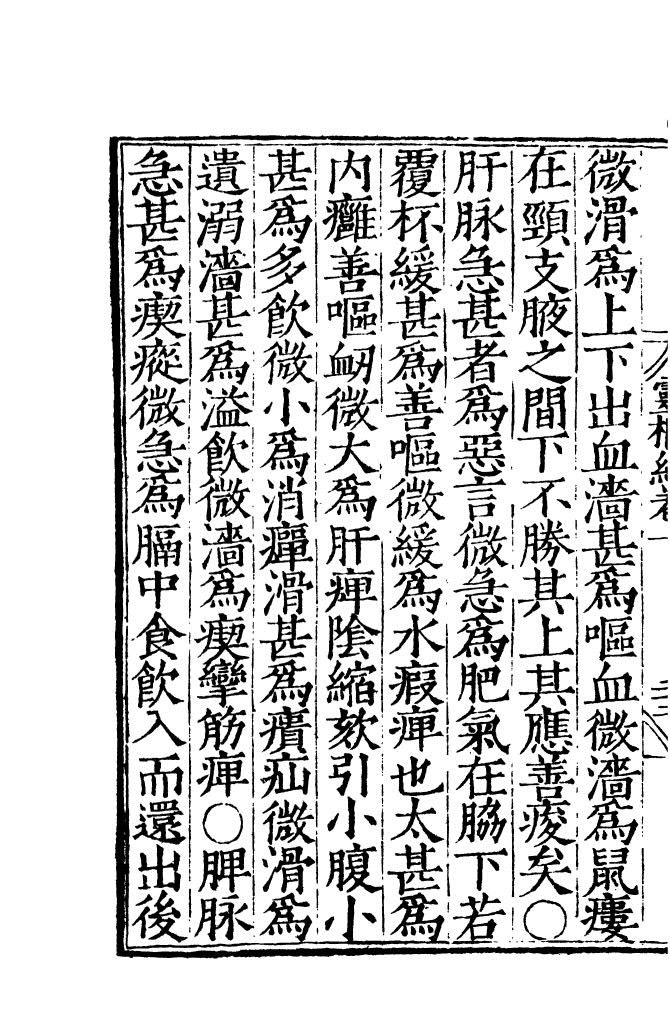 微滑爲上下出血濇甚爲嘔血微濇爲鼠瘻
在頸支腋之間下不勝其上其應善痠矣〇
肝脉急甚者爲惡言微急爲肥氣在脇下若
覆杯緩甚爲善嘔微緩爲水瘕痺也太甚爲
内癰善嘔衂微大爲肝痺陰縮欬引小腹小
甚爲多飲微小爲消癉滑甚爲㿉疝微滑爲
遺溺濇甚爲溢飲微濇爲瘈攣筋痺〇脾脉
急甚爲瘈瘲微急爲膈中食飲入而還出後